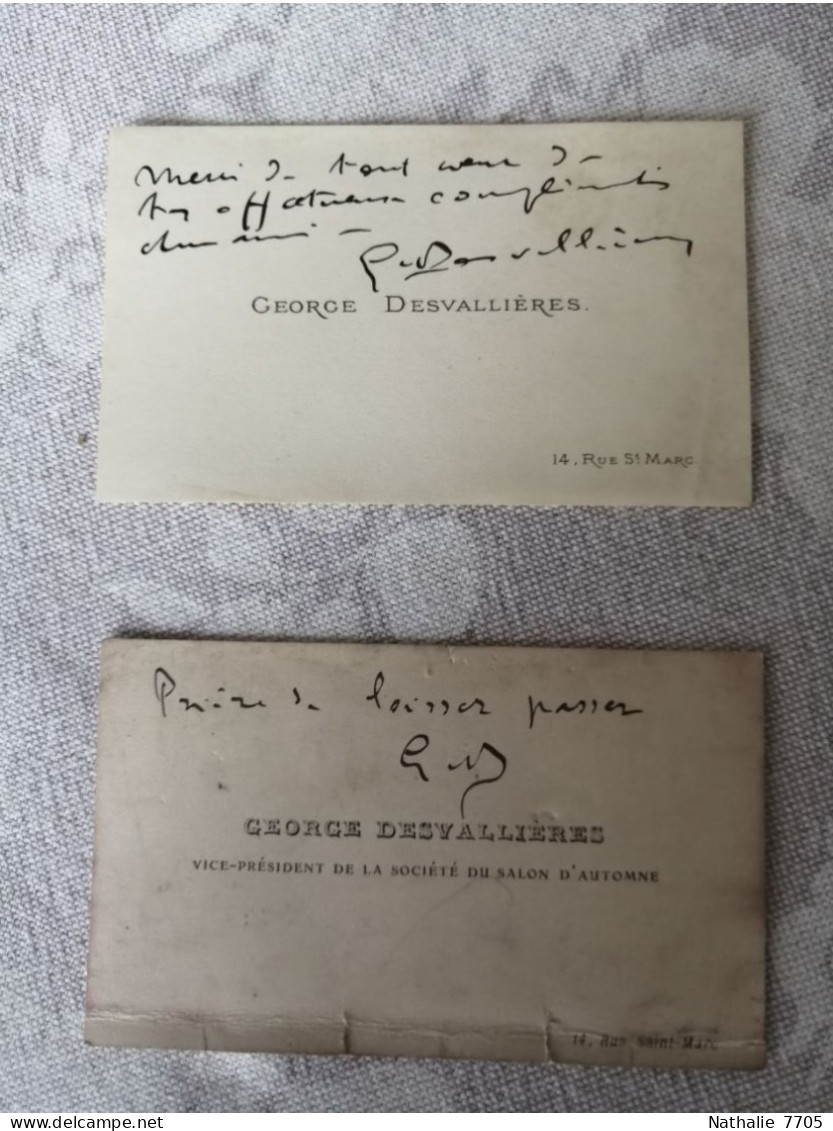 Merci de tout cœur de
tes affectueux compliments
cher ami –
G. Desvallières
GEORGE DESVALLIÈRES.
14, RUE St MARC
Prière de laisser passer
G. D
GEORGE DESVALLIÈRES
VICE-PRÉSIDENT DE LA SOCIÉTÉ DU SALON D'AUTOMNE
14, Rue Saint-Marc
Nathalie 7705